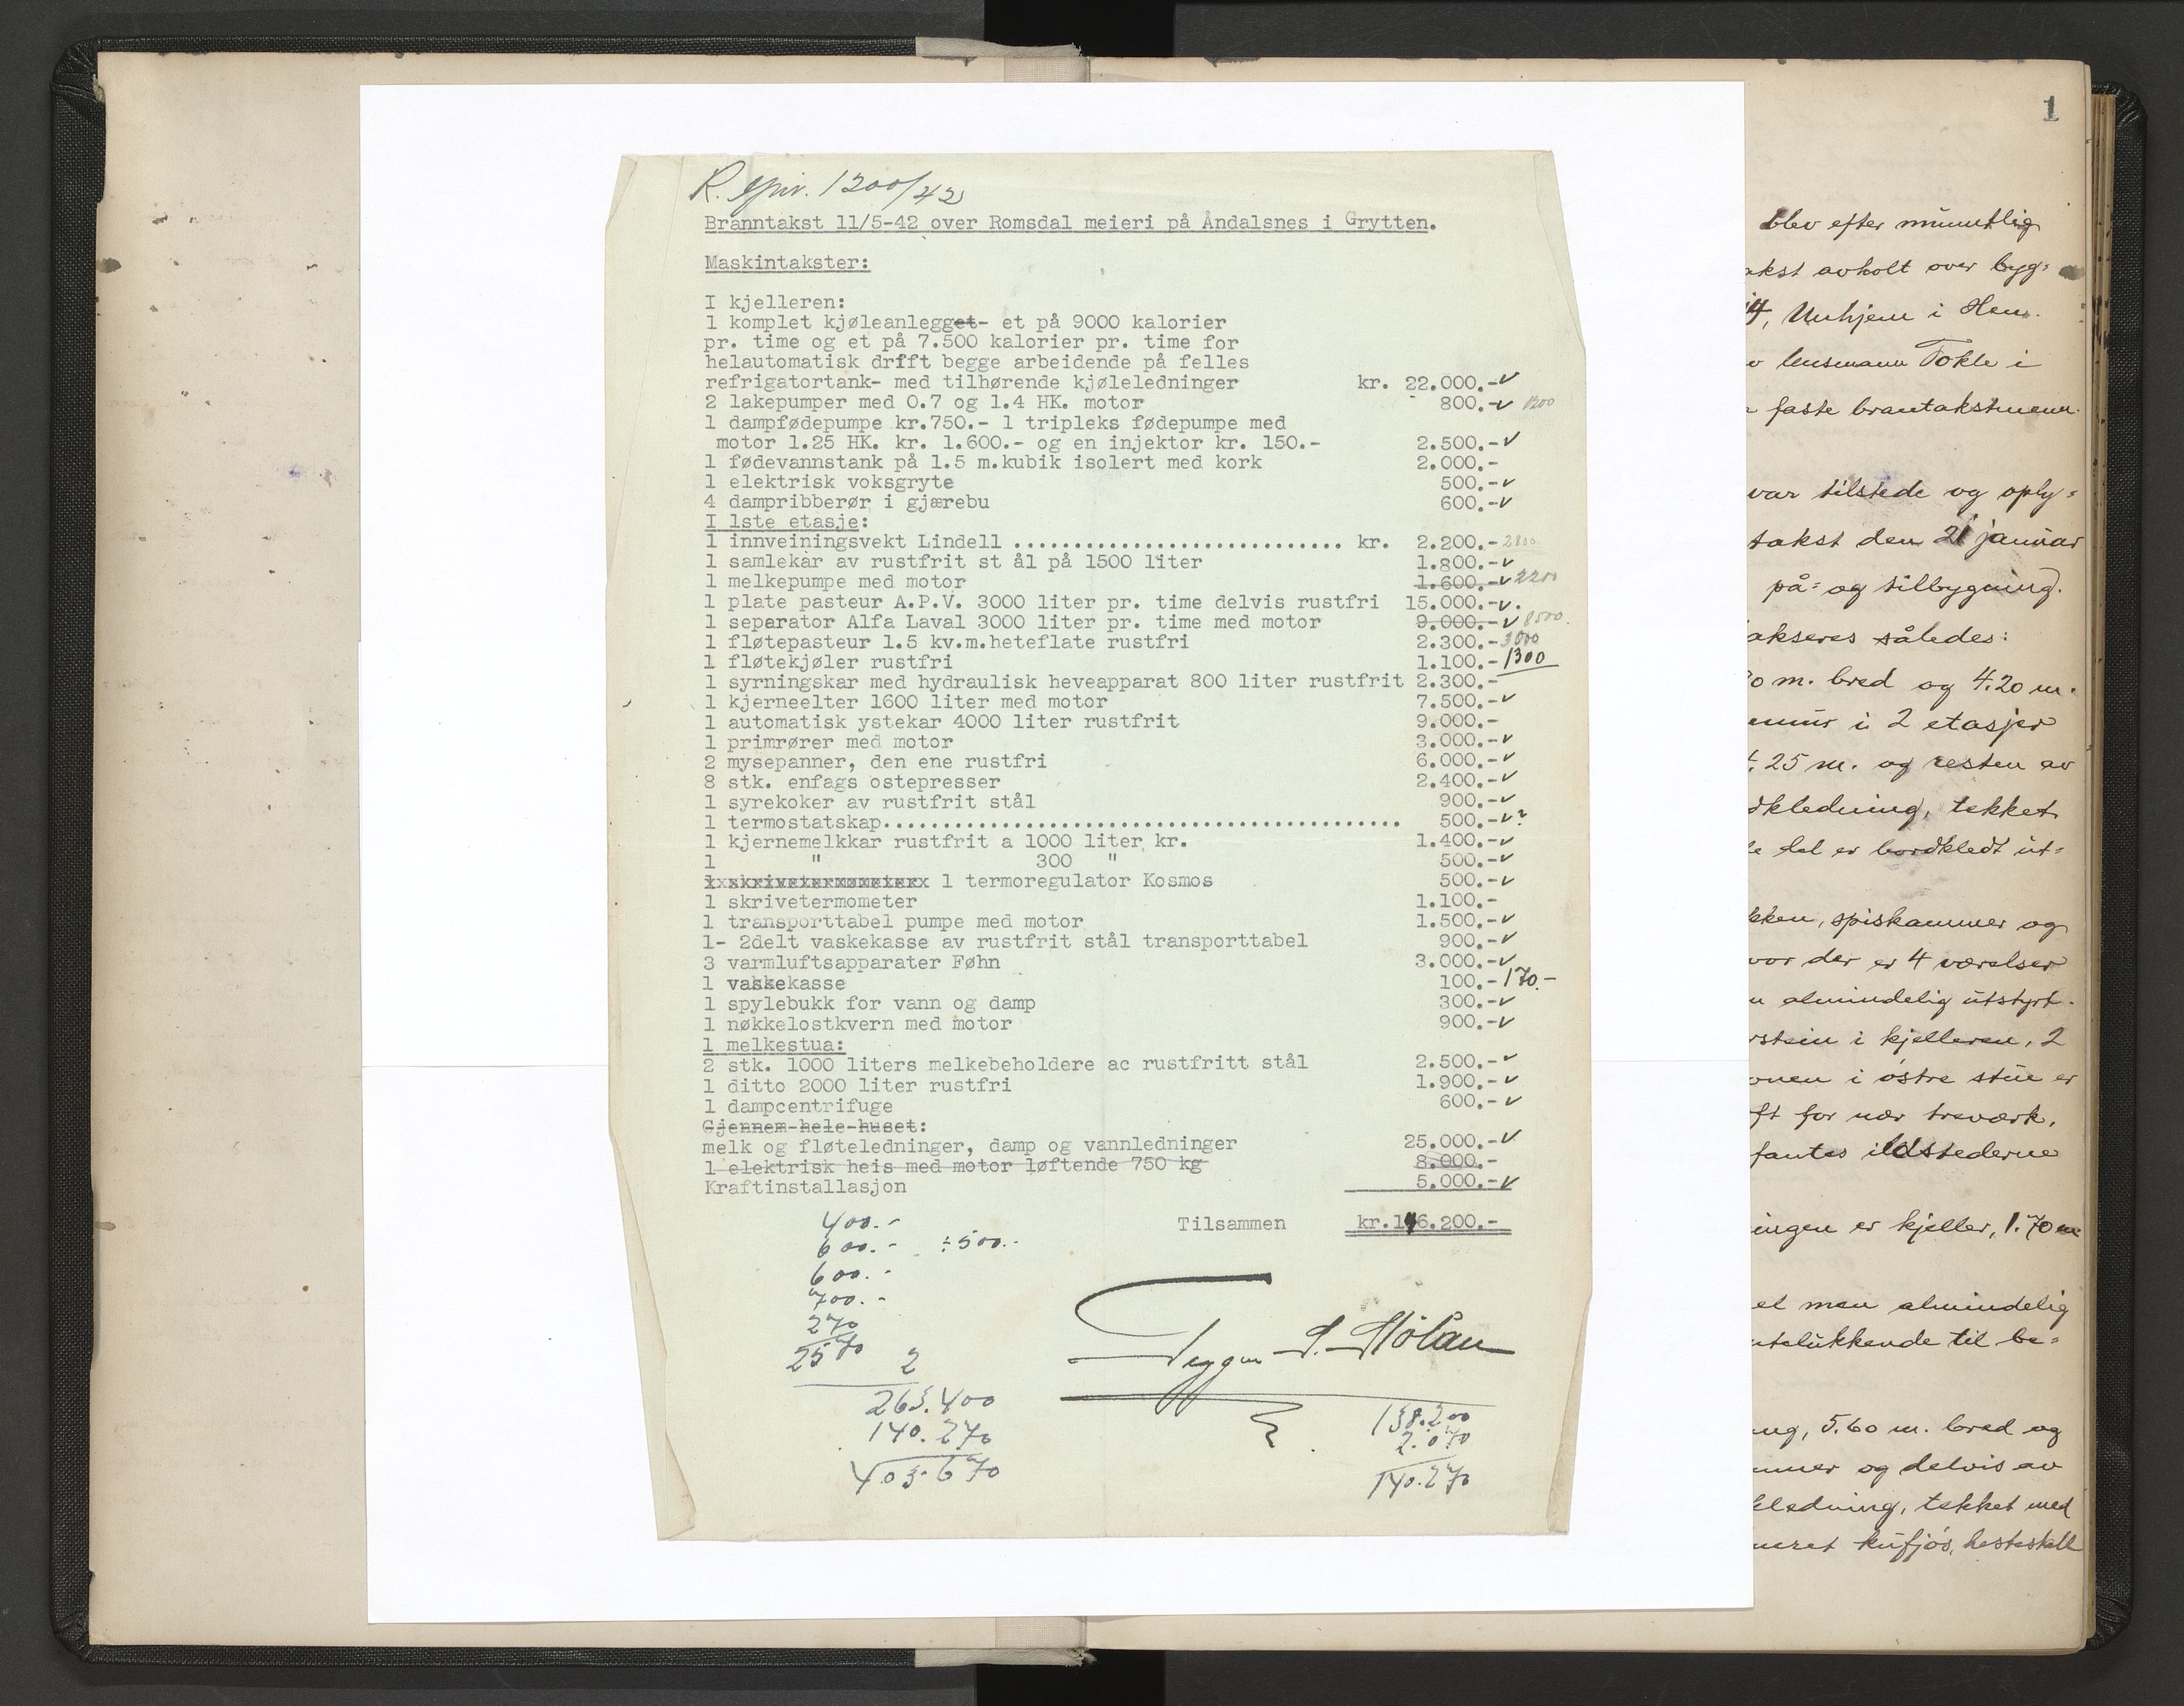 R. gjnr. 1200/42
Branntakst 11/5-42 over Romsdal meieri på Åndalsnes i Grytten.
Maskintakster:
I kjelleren:
1 komplet kjøleanlegget- et på 9000 kalorier
pr. time og et på 7.500 kalorier pr. time for
helautomatisk drfft begge arbeidende på felles
refrigatortank- med tilhørende kjøleledninger kr. 22.000.-✓
2 lakepumper med 0.7 og 1.4 HK. motor 800.-✓ 1200
1 dampfødepumpe kr.750.- 1 tripleks fødepumpe med
motor 1.25 HK. kr. 1.600.- og en injektor kr. 150.- 2.500.-✓
1 fødevannstank på 1.5 m.kubik isolert med kork 2.000.-
1 elektrisk voksgryte 500.-✓
4 dampribberør i gjærebu 600.-✓
I 1ste etasje:
1 innveiningsvekt Lindell ............................ kr. 2.200.- 2800
1 samlekar av rustfrit st ål på 1500 liter 1.800.-✓
1 melkepumpe med motor 1.600.-✓ 2200
1 plate pasteur A.P.V. 3000 liter pr. time delvis rustfri 15.000.-✓.
1 separator Alfa Laval 3000 liter pr. time med motor 9.000.-✓ 8500.
1 fløtepasteur 1.5 kv.m.heteflate rustfri 2.300.- 3000
1 fløtekjøler rustfri 1.100.- 1300
1 syrningskar med hydraulisk heveapparat 800 liter rustfrit 2.300.-
1 kjerneelter 1600 liter med motor 7.500.-✓
1 automatisk ystekar 4000 liter rustfrit 9.000.-
1 primrører med motor 3.000.-✓
2 mysepanner, den ene rustfri 6.000.-✓
8 stk. enfags ostepresser 2.400.-✓
1 syrekoker av rustfrit stål 900.-✓
1 termostatskap........................................... 500.-✓?
1 kjernemelkkar rustfrit a 1000 liter kr. 1.400.-✓
1 " 300 " 500.-✓
1 skrivetermometer 1 termoregulator Kosmos 500.-✓
1 skrivetermometer 1.100.-
1 transporttabel pumpe med motor 1.500.-✓
1- 2delt vaskekasse av rustfrit stål transporttabel 900.-✓
3 varmluftsapparater Føhn 3.000.-✓
1 vaskekasse 100.- 170.-
1 spylebukk for vann og damp 300.-✓
1 nøkkelostkvern med motor 900.-✓
1 melkestua:
2 stk. 1000 liters melkebeholdere ac rustfritt stål 2.500.-✓
1 ditto 2000 liter rustfri 1.900.-✓
1 dampcentrifuge 600.-✓
Gjennem hele huset:
melk og fløteledninger, damp og vannledninger 25.000.-✓
1 elektrisk heis med motor løftende 750 kg 8.000.-
Kraftinstallasjon 5.000.-✓
Tilsammen kr.146.200.-
400.-
600.- ÷500.-
600.-
700.-
270
2570 2
263.400
140.270
403.670
S. Stölan
138.200
2.070
140.270
1
blev efter muntlig
akst avholt over byg=
Unhjem i Hen.
lensmann Tokle i
faste brantakstmenn.
var tilstede og oply=
takst den 21 januar
på= og tilbygning.
akseres således:
0 m. bred og 4.20 m.
mur i 2 etasjer
.25 m. og resten av
dkledning, tekket
del er bordkledt ut=
kken, spiskammer og
vor der er 4 værelser
almindelig utstyrt.
rstein i kjelleren, 2
onen i østre stue er
ft for nær treværk.
fantes ildstederne
ingen er kjeller, 1.70 m
et men almindelig
utelukkende til be=
ng, 5.60 m. bred og
mmer og delvis av
kledning, tekket med
neret kufjøs, hestestall